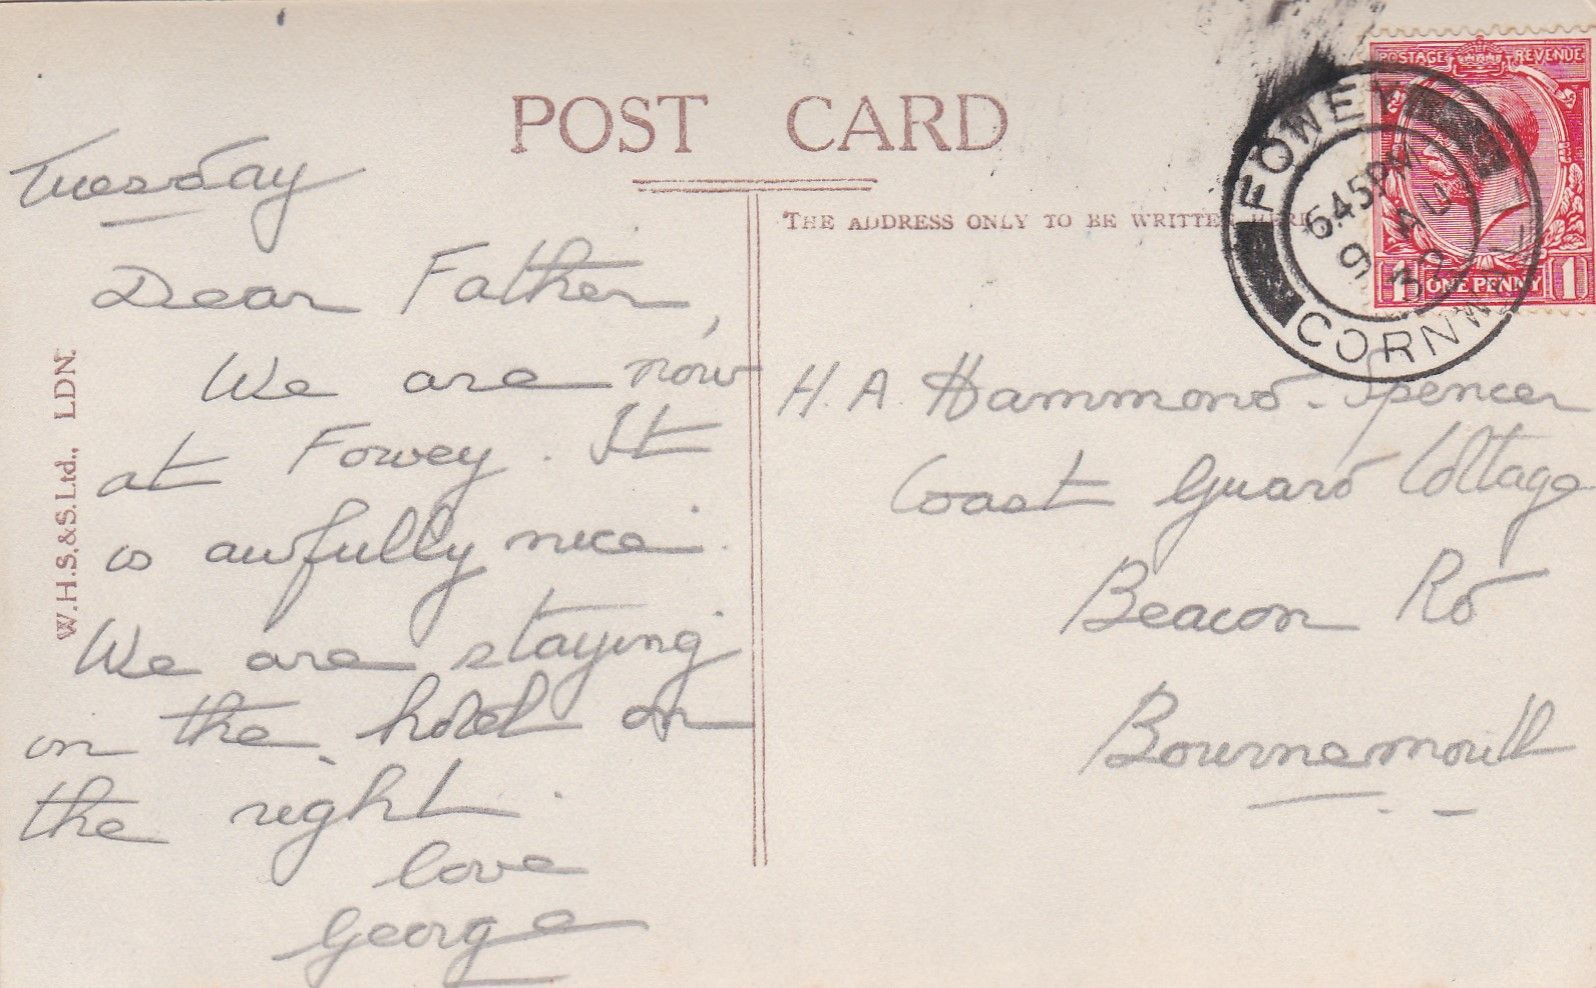 POST CARD
Tuesday
Dear Father,
We are now
at Fowey. It
is awfully nice.
We are staying
in the hotel on
the right.
love
George
W.H.S.&S.Ltd., LDN.
THE ADDRESS ONLY TO BE WRITTEN HERE
H. A. Hammond-Spencer
Coast Guard Cottage
Beacon Rd
Bournemouth
POSTAGE REVENUE
1 ONE PENNY 1
FOWEY
6.45PM
9 AU
32
CORNWALL